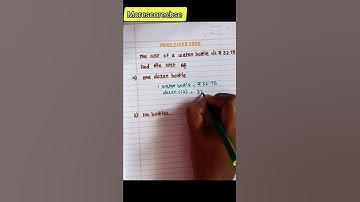 Morescorecbse
MORE SCORE CBSE
The cost of a water bottle is ₹ 32.75
Find the cost of
a) one dozen bottle
1 water bottle = ₹ 32.75
dozen (12) = 32
b) 100 bottles